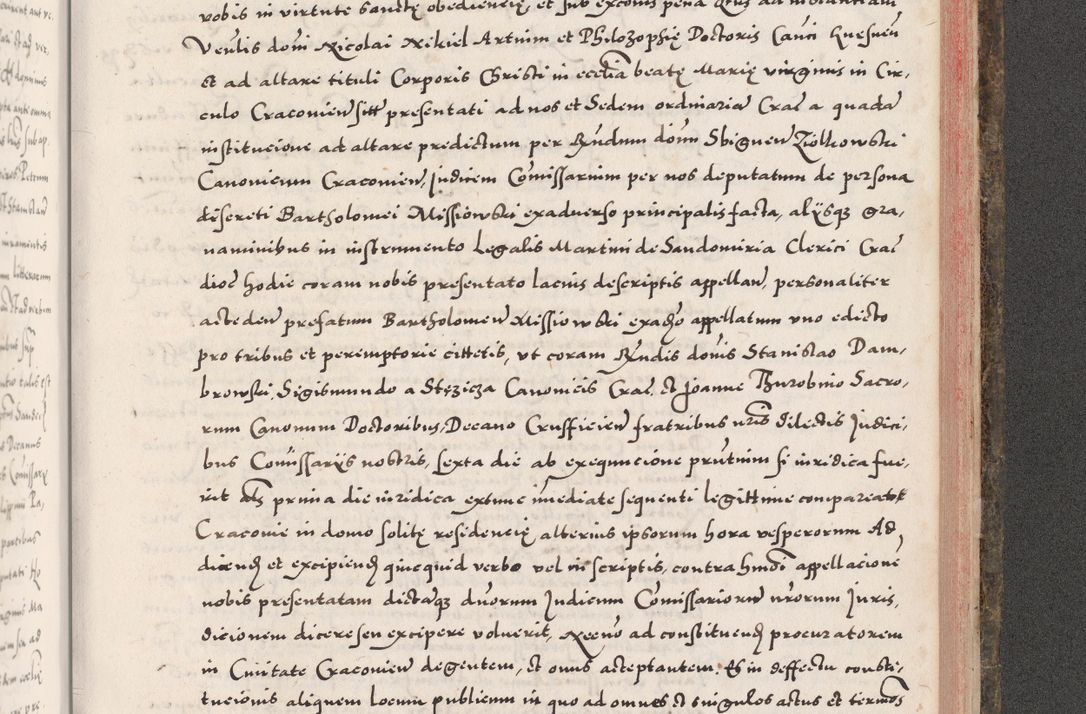 vobis in virtute sanctę obediencię, et sub exconis pena
Venlis domi Nicolai Mikiel Artuim et Philozophię Doctoris Causi
et ad altare tituli Corporis Christi in ecclia beatę Marię virginis in Cir,
culo Cracovien sitt presentati ad nos et Sedem ordinaria Crac a quada
institucione ad altare predictum per Rndum domi Sbignew Ziolkowski
Canonicum Cracovien, Judicem Comissarium per nos deputatum de persona
discreti Bartholomei Missiowski exadverso principalis facta, alysq gra,
naminibus in instrumento Legalis Martini de Sandomiria Clerici Crac
dioc hodie coram nobis presentato lacius descriptis appellan, personaliter
acteden prefatum Bartholomeu Missiowski exadso appellatum uno edicto
pro tribus et peremptorie cittetis, ut coram Rndis donis Stanislao Dam,
browski, Sigismundo a Stęzicza Canonicis Crac. et Joanne Thurobnio Sacro,
rum Canonum Doctoribus, Decano Crusficien fratribus nris dilectis Judici,
bus Comissarys nostris, sexta die ab exequucione pntium si iuridica fue,
rit als prima die iuridica extunc imediate sequenti legittime compareat
Cracovie in domo solitę residencię alterius ipsorum hora vesperorum Ad
dicend et excipiend quicquid verbo vel in scriptis, contra hmodi appellacione
nobis presentatam dictasq duorum Judicum Comissarioru nrorum Juris,
dicionem dicere seu excipere voluerit, Necno ad constituend procuratorem
in Civitate Cracovien degentem, et onus acceptantem. Et in deffectu consti,
tucionis aliquem locum publicum in quo ad omnes et singulos actus et termos